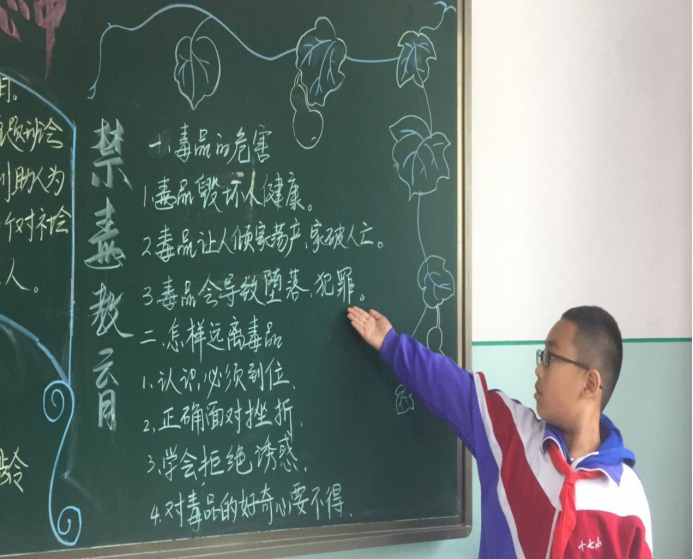 神
用。
题讨论会
利助人为
个对不论
人。
龄
禁毒教育
一、毒品的危害
1.毒品毁坏人健康。
2.毒品让人倾家荡产、家破人亡。
3.毒品会导致堕落、犯罪。
二、怎样远离毒品
1.认识必须到位、
2.正确面对挫折、
3.学会拒绝诱惑、
4.对毒品的好奇心要不得、
十七小